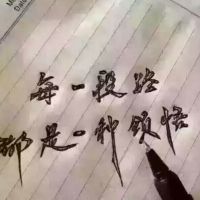 每一段经
都是一种领悟